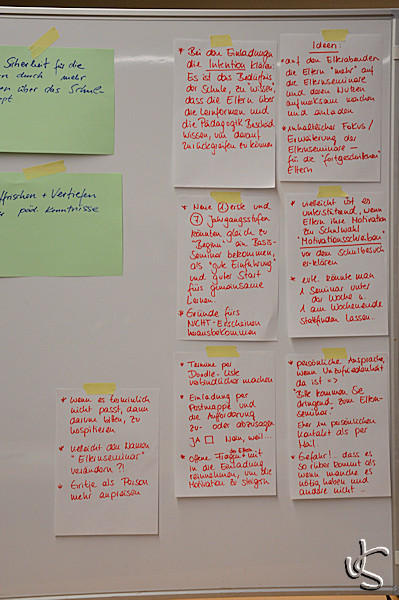 Sicherheit für die
durch mehr
über das Schul-
ept
ffrischen + Vertiefen
päd. Kenntnisse
* Bei den Einladungen
die Intention klären
Es ist das Bedürfnis
der Schule, zu wissen,
dass die Eltern über
die Lernformen und
die Pädagogik Bescheid
wissen, um darauf
zurückgreifen zu können
Ideen:
* auf den Elternabenden
die Eltern "mehr" auf
die Elternseminare
und deren Nutzen
aufmerksam machen
und einladen
* inhaltlicher Fokus/
Erweiterung der
Elternseminare –
für die "fortgeschrittenen"
Eltern
* Neue 1 erste und
7 Jahrgangsstufen
könnten gleich zu
"Beginn" ein Basis-
Seminar bekommen,
als "gute Einführung"
und guter Start
für gemeinsames
Lernen.
* Gründe fürs
NICHT-Erscheinen
herausbekommen
* vielleicht ist es
unterstützend, wenn
Eltern ihre Motivation
zu Schulwahl
"Motivationsschreiben"
vor dem Schulbesuch
er-klären
* evtl. könnte man
1 Seminar unter
der Woche u.
1 am Wochenende
stattfinden lassen..
* Termine per
Doodle-Liste
verbindlicher machen
* Einladung per
Postmappe und
die Aufforderung
zu- oder abzusagen
JA □ Nein, weil...
* Offene Fragen der Eltern mit
in die Einladung
reinnehmen, um die
Motivation zu steigern
* persönliche Ansprache,
wenn Unzufriedenheit
da ist =>
"Bitte kommen Sie
dringend zum Eltern-
seminar"
Eher im persönlichen
Kontakt als per
Mail.
* Gefahr!.. dass es
so rüber kommt als
wenn manche es
nötig haben und
andere nicht...
* wenn es terminlich
nicht passt, dann
darum bitten, zu
hospitieren
* vielleicht den Namen
"Elternseminar"
verändern ?!
* Gritje als Person
mehr anpreisen